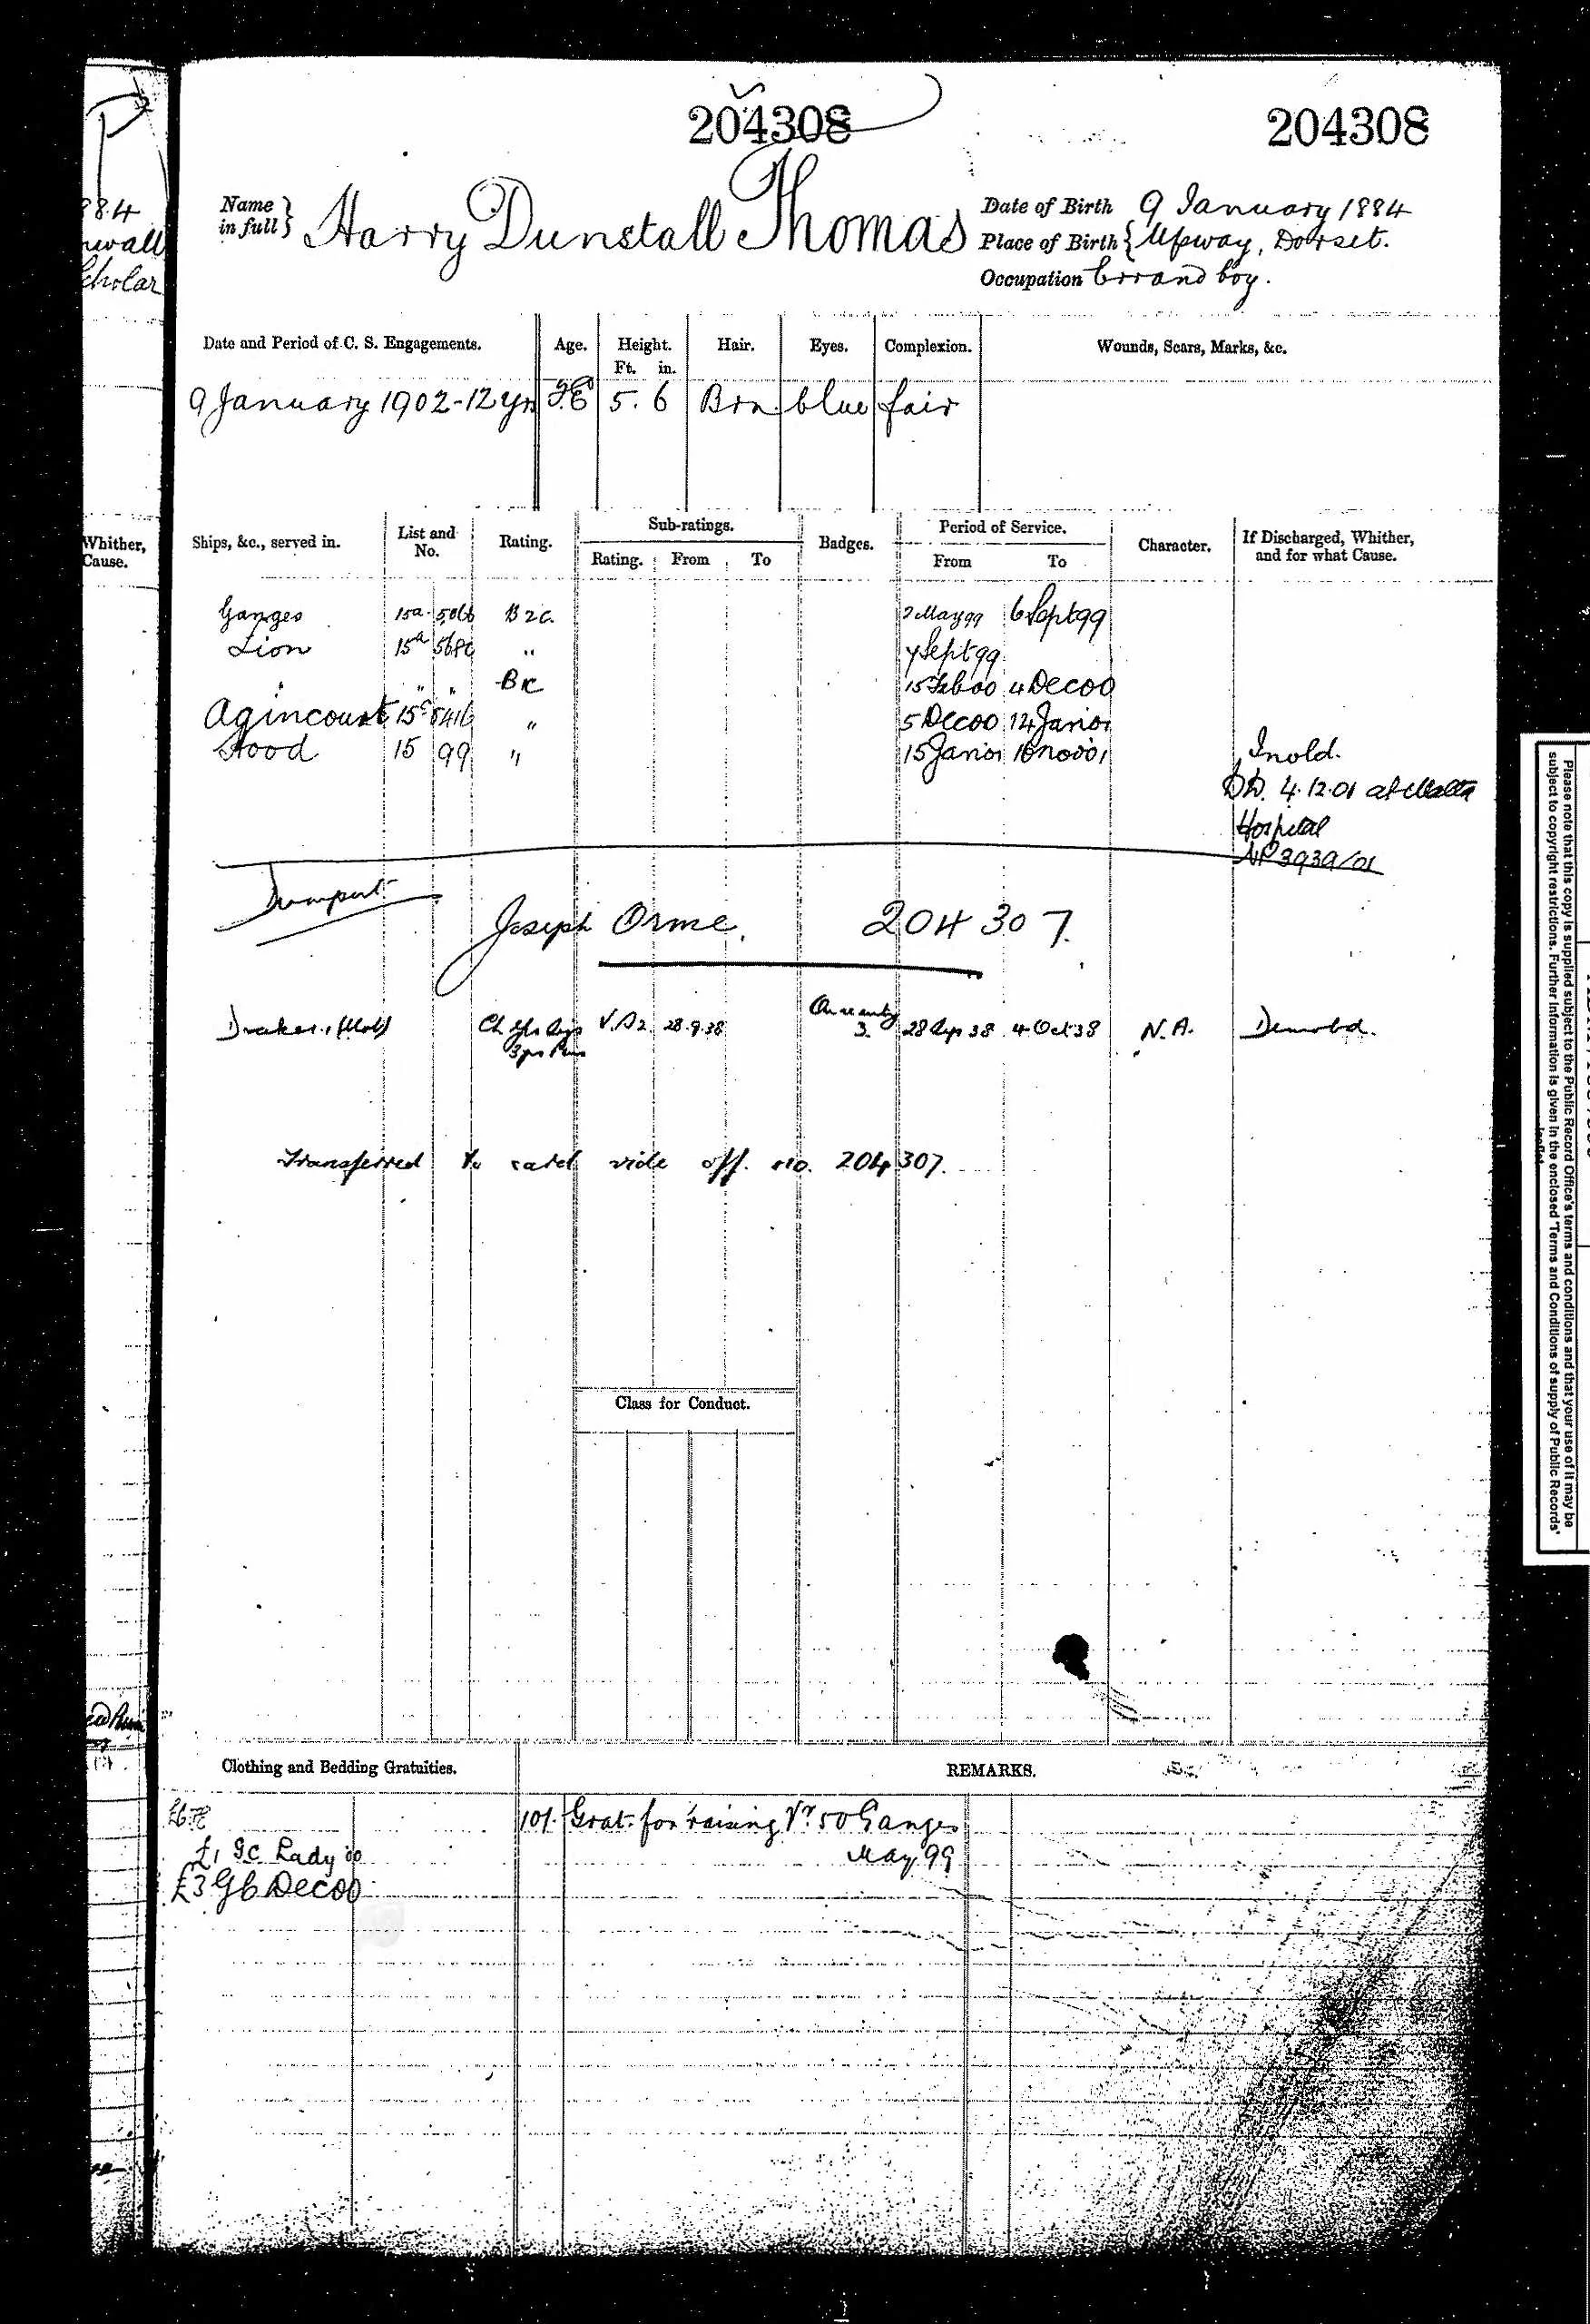 204308
204308
Name in full } Harry Dunstall Thomas
Date of Birth 9 January 1884
Place of Birth { Upway, Dorset.
Occupation Errand boy.
884
nwall
Scholar
Date and Period of C. S. Engagements. Age. Height. Ft. in. Hair. Eyes. Complexion. Wounds, Scars, Marks, &c.
9 January 1902 - 12 yrs 5. 6 Brn blue fair
Whither, Cause.
Ships, &c., served in. List and No. Rating. Sub-ratings. Rating. From To Badges. Period of Service. From To Character. If Discharged, Whither, and for what Cause.
Ganges 15a 5066 B 2c. 2 May 99 6 Sept 99
Lion 15a " 7 Sept 99
" " " B 1c 15 Feb 00 4 Dec 00
Agincourt 15c 8416 " 5 Dec 00 14 Jan 01
Hood 15 99 " 15 Jan 01 Nov 01 Invld.
DD. 4.12.01 at Malta
Hospital
NP 3939/01
Joseph Orme. 204307.
Drake 28.9.38 3. 28 Sep 38 4 Oct 38 N.A. Demobd.
Transferred to card vide off. no. 204307.
Class for Conduct.
Clothing and Bedding Gratuities. REMARKS.
10/. Grat. for raising Vr. 50 Ganges
May 99
£3 Gb Dec 00
Please note that this copy is supplied subject to the Public Record Office's terms and conditions and that your use of it may be
subject to copyright restrictions. Further information is given in the enclosed 'Terms and Conditions of supply of Public Records'
leaflet